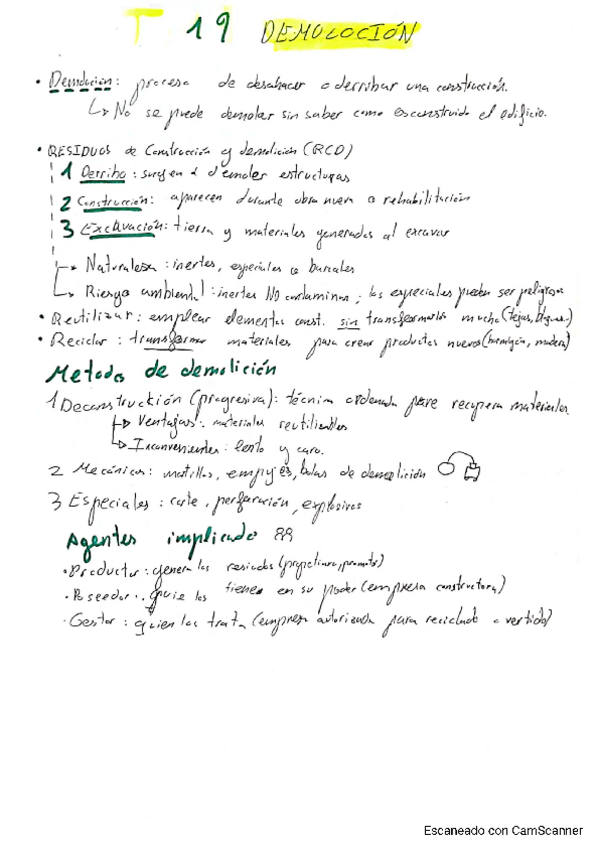 T 19 DEMOLOCIÓN
• Demolicion: proceso de desahacer o derribar una construcción.
↳ No se puede demoler sin saber como es construido el edificio.
• RESIDUOS de Construcción y demolición (RCD)
1 Derribo: surgen al demoler estructuras
2 Construcción: aparecen durante obra nueva o rehabilitación
3 Excavación: tierra y materiales generados al excavar
→ Naturaleza: inertes, especiales o banales
→ Riesgo ambiental: inertes NO contaminan; los especiales pueden ser peligrosos
• Reutilizar: emplear elementos const. sin transformarlos mucho (tejas, bloques..)
• Reciclar: transformar materiales para crear productos nuevos (hormigón, madera)
Metodos de demolición
1 Deconstrucktión (progresiva): técnica ordenada para recupera materiales.
→ Ventajas: materiales reutilizables
→ Inconvenientes: lento y caro.
2 Mecánicos: martillos, empujes, bolas de demolición
3 Especiales: corte, perforación, explosivos
Agentes implicado
• Productor: genera los residuos (propietario, promotor)
• Poseedor: quie los tienen en su poder (empresa constructora)
• Gestor: quien los trata (empresa autorizada para reciclado o vertido)
Escaneado con CamScanner